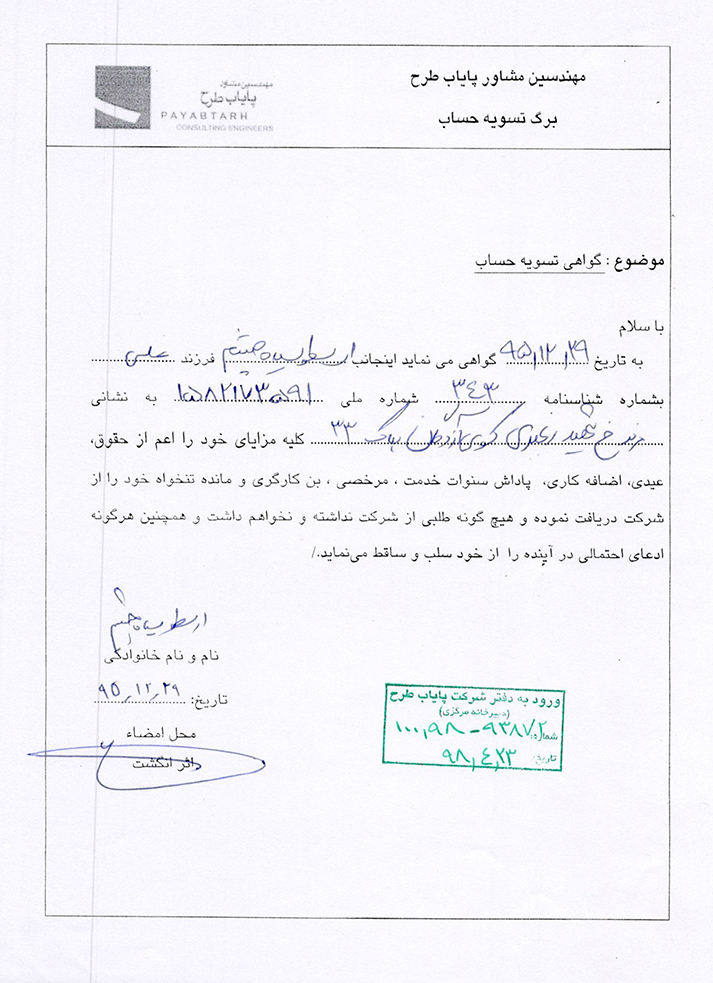 مهندسین مشاور پایاب طرح
برگ تسویه حساب
مهندسین مشاور
پایاب طرح
PAYABTARH
CONSULTING ENGINEERS
موضوع : گواهی تسویه حساب
با سلام
به تاریخ ۹۵/۱۲/۲۹ گواهی می نماید اینجانب ارسطو سیاه چشم فرزند علی
بشماره شناسنامه ۳۴۳ شماره ملی ۱۵۸۲۱۷۳۰۵۹۱ به نشانی
شهید کوی ۳۳ کلیه مزایای خود را اعم از حقوق،
عیدی، اضافه کاری، پاداش سنوات خدمت ، مرخصی ، بن کارگری و مانده تنخواه خود را از
شرکت دریافت نموده و هیچ گونه طلبی از شرکت نداشته و نخواهم داشت و همچنین هرگونه
ادعای احتمالی در آینده را از خود سلب و ساقط می‌نماید./
ارسطو سیاه چشم
نام و نام خانوادگی
تاریخ: ۹۵/۱۲/۲۹
محل امضاء
اثر انگشت
ورود به دفتر شرکت پایاب طرح
(دبیرخانه مرکزی)
شماره: ۱۰۰٫۹۸ – ۹۳۸۷/۲
تاریخ: ۹۸/۴/۲۳